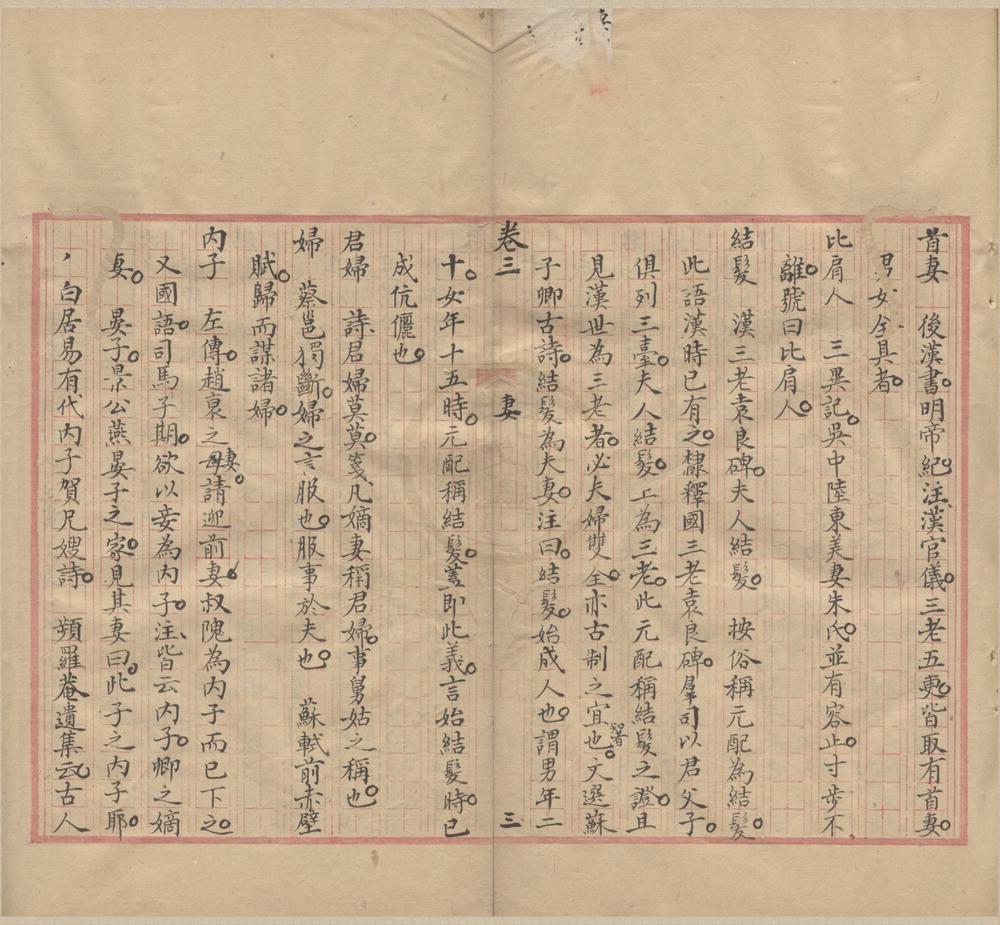 首妻　後漢書。明帝紀注漢官儀。三老五更。皆取有首妻。
男女全具者。
比肩人　三異記。吳中陸東美妻朱氏。並有容止。寸步不
離。號曰比肩人。
結髮　漢三老袁良碑。夫人結髮。　按俗稱元配為結髮。
此語漢時已有之。隸釋國三老袁良碑。羣司以君父子。
俱列三臺。夫人結髮。上為三老。此元配稱結髮之證。且
見漢世為三老者。必夫婦雙全。亦古制之宜也。文選蘇
子卿古詩。結髮為夫妻。注曰。結髮。始成人也。謂男年二
卷三　妻　三
十。女年十五時。元配稱結髮。蓋即此義。言始結髮時。已
成伉儷也。
君婦　詩。君婦莫莫。箋凡嫡妻稱君婦。事舅姑之稱也。
婦　蔡邕獨斷。婦之言服也。服事於夫也。　蘇軾前赤壁
賦。歸而謀諸婦。
內子　左傳。趙衰之妻。請迎前妻。叔隗為內子而已下之。
又國語。司馬子期。欲以妾為內子。注皆云內子。卿之嫡
妻。　晏子。景公燕晏子之家。見其妻曰。此子之內子耶。
、　白居易有代內子賀兄嫂詩。　蘋羅菴遺集云。古人